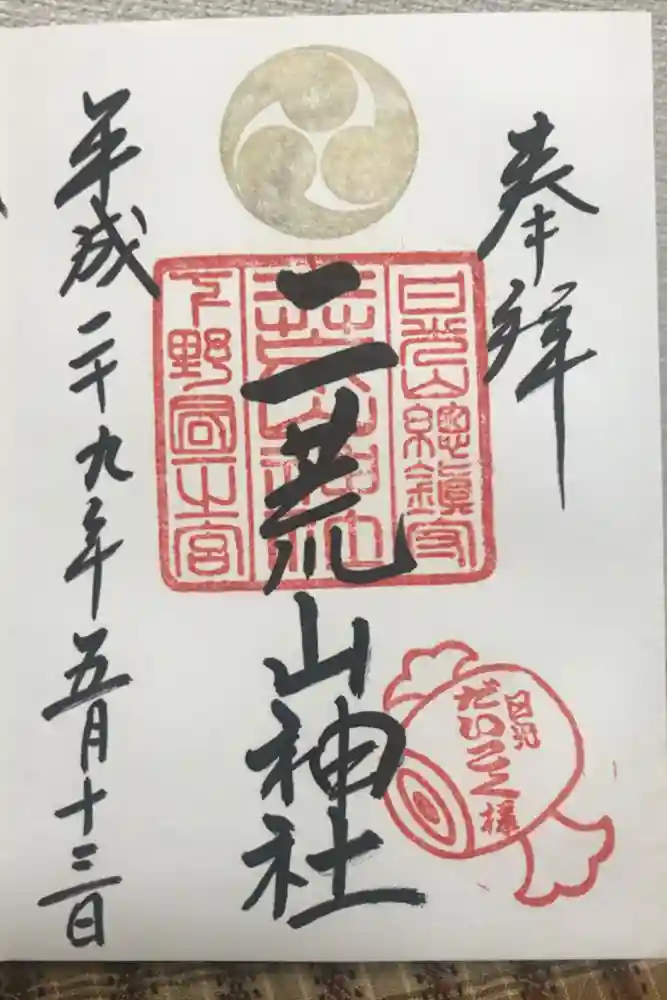 奉拝
日光山總鎮守
二荒山神社
二荒山神社
下野國一之宮
日光
だいこく様
平成二十九年五月十三日